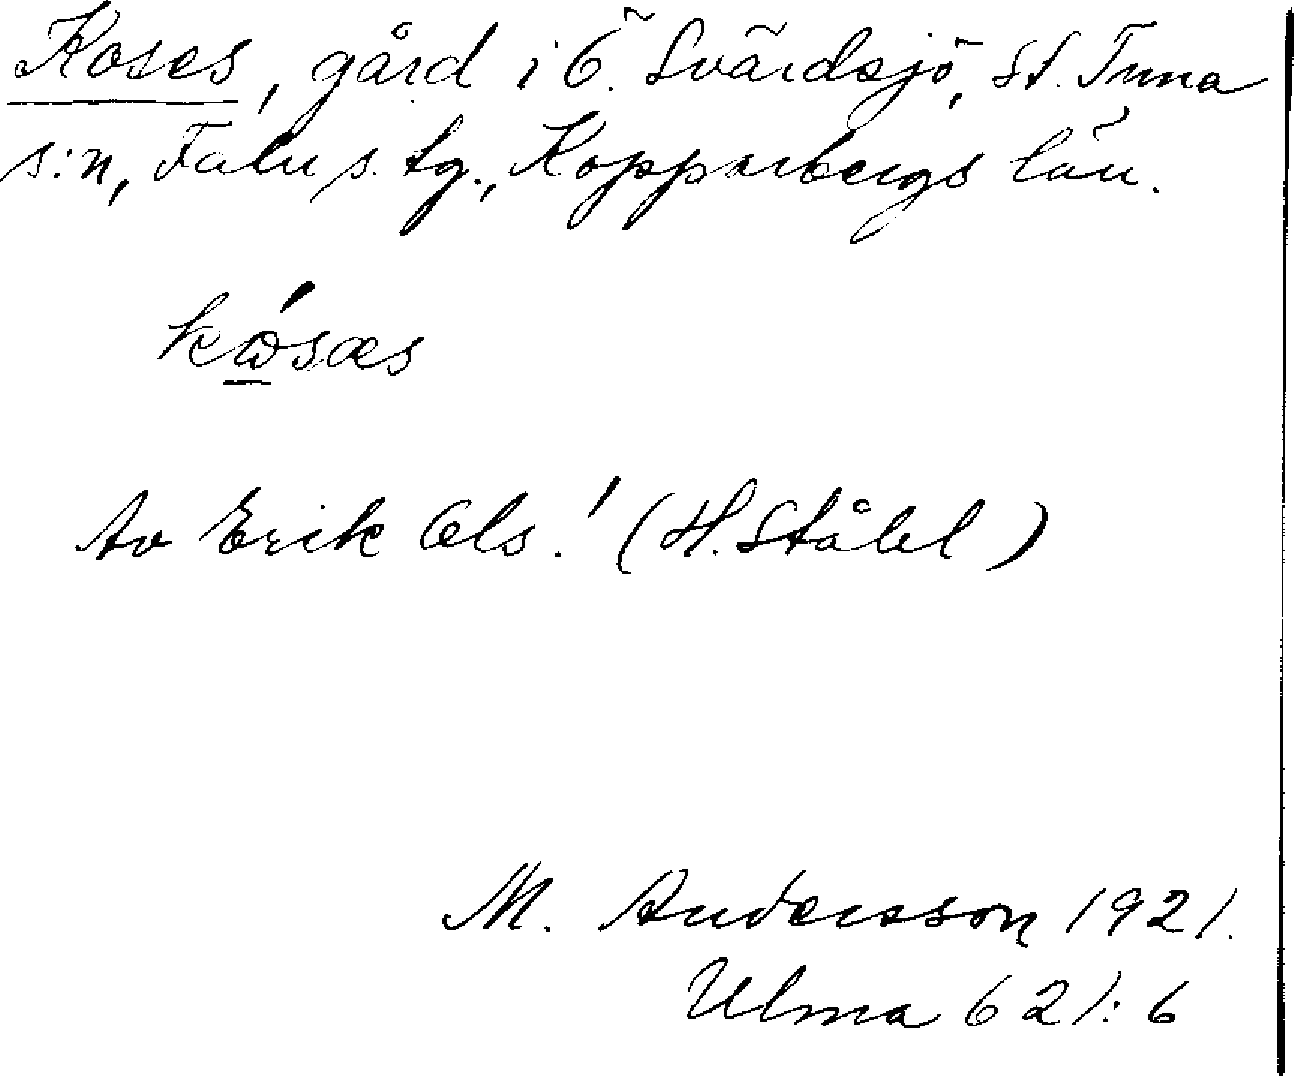 Koses, gård i Ö. Svärdsjö, St. Tuna
s:n, Falu s. tg., Kopparbergs län.
kɷ́sæs
Av Erik Ols.! (H. Ståhl)
M. Andersson 1921.
Ulma 621:6